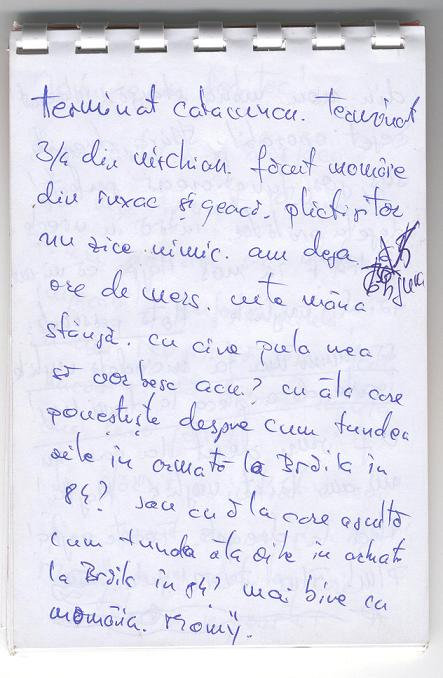 terminat cataconcu. terminat
3/4 din nischian. făcut momâie
din ruxac și geacă. plictisitor
nu zice nimic. am deja
ore de mers. mâna
stângă. cu cine pula mea
să vorbesc acu? cu ăla care
povestește despre cum tundea
oile în armată la Brăila în
84? sau cu ăla care ascultă
cum tundea ăla oile în armată
la Brăila în 84? mai bine cu
momâia.